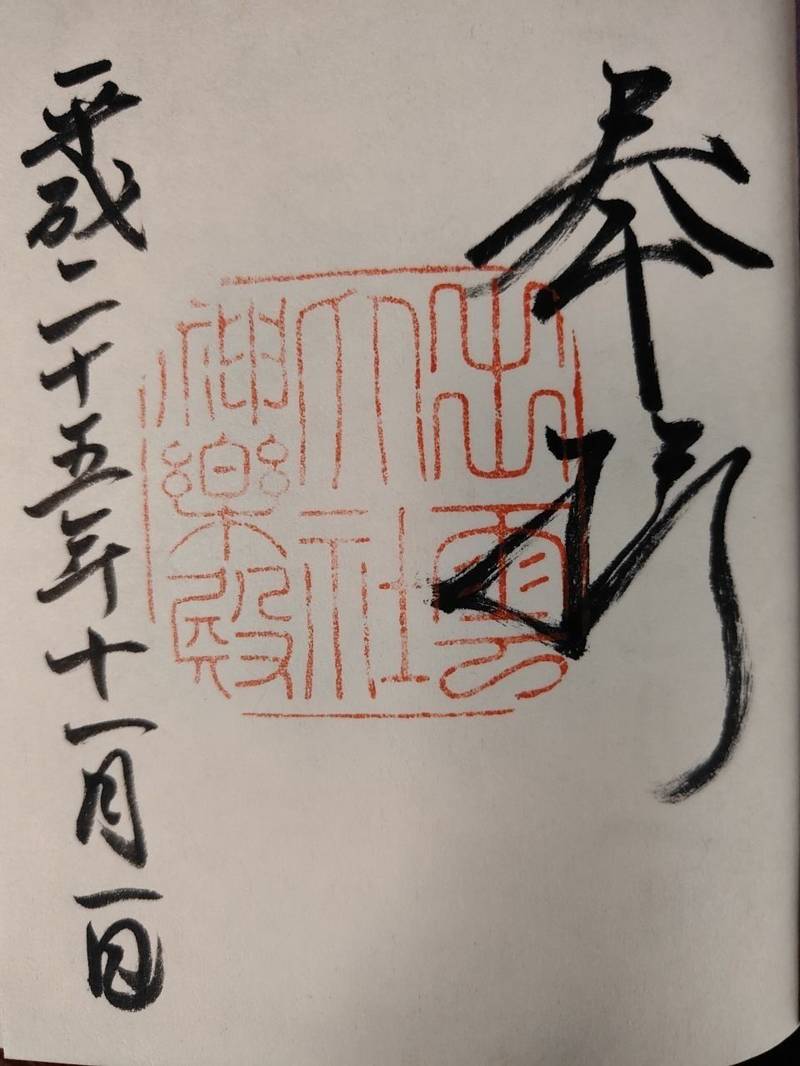 奉拝
出雲
大社
神楽殿
平成二十五年十一月一日